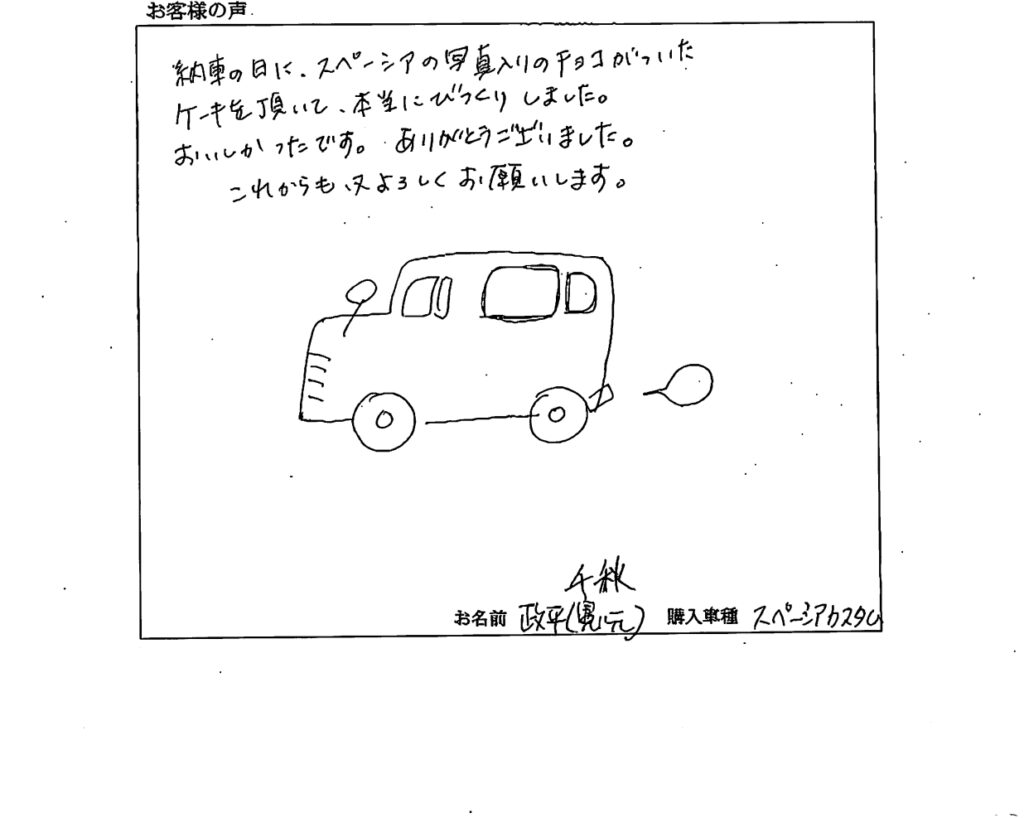 お客様の声
納車の日に、スペーシアの写真入りのチョコがついた
ケーキを頂いて、本当にびっくりしました。
おいしかったです。ありがとうございました。
これからも又よろしくお願いします。
千秋
お名前 政平 購入車種 スペーシアカスタム